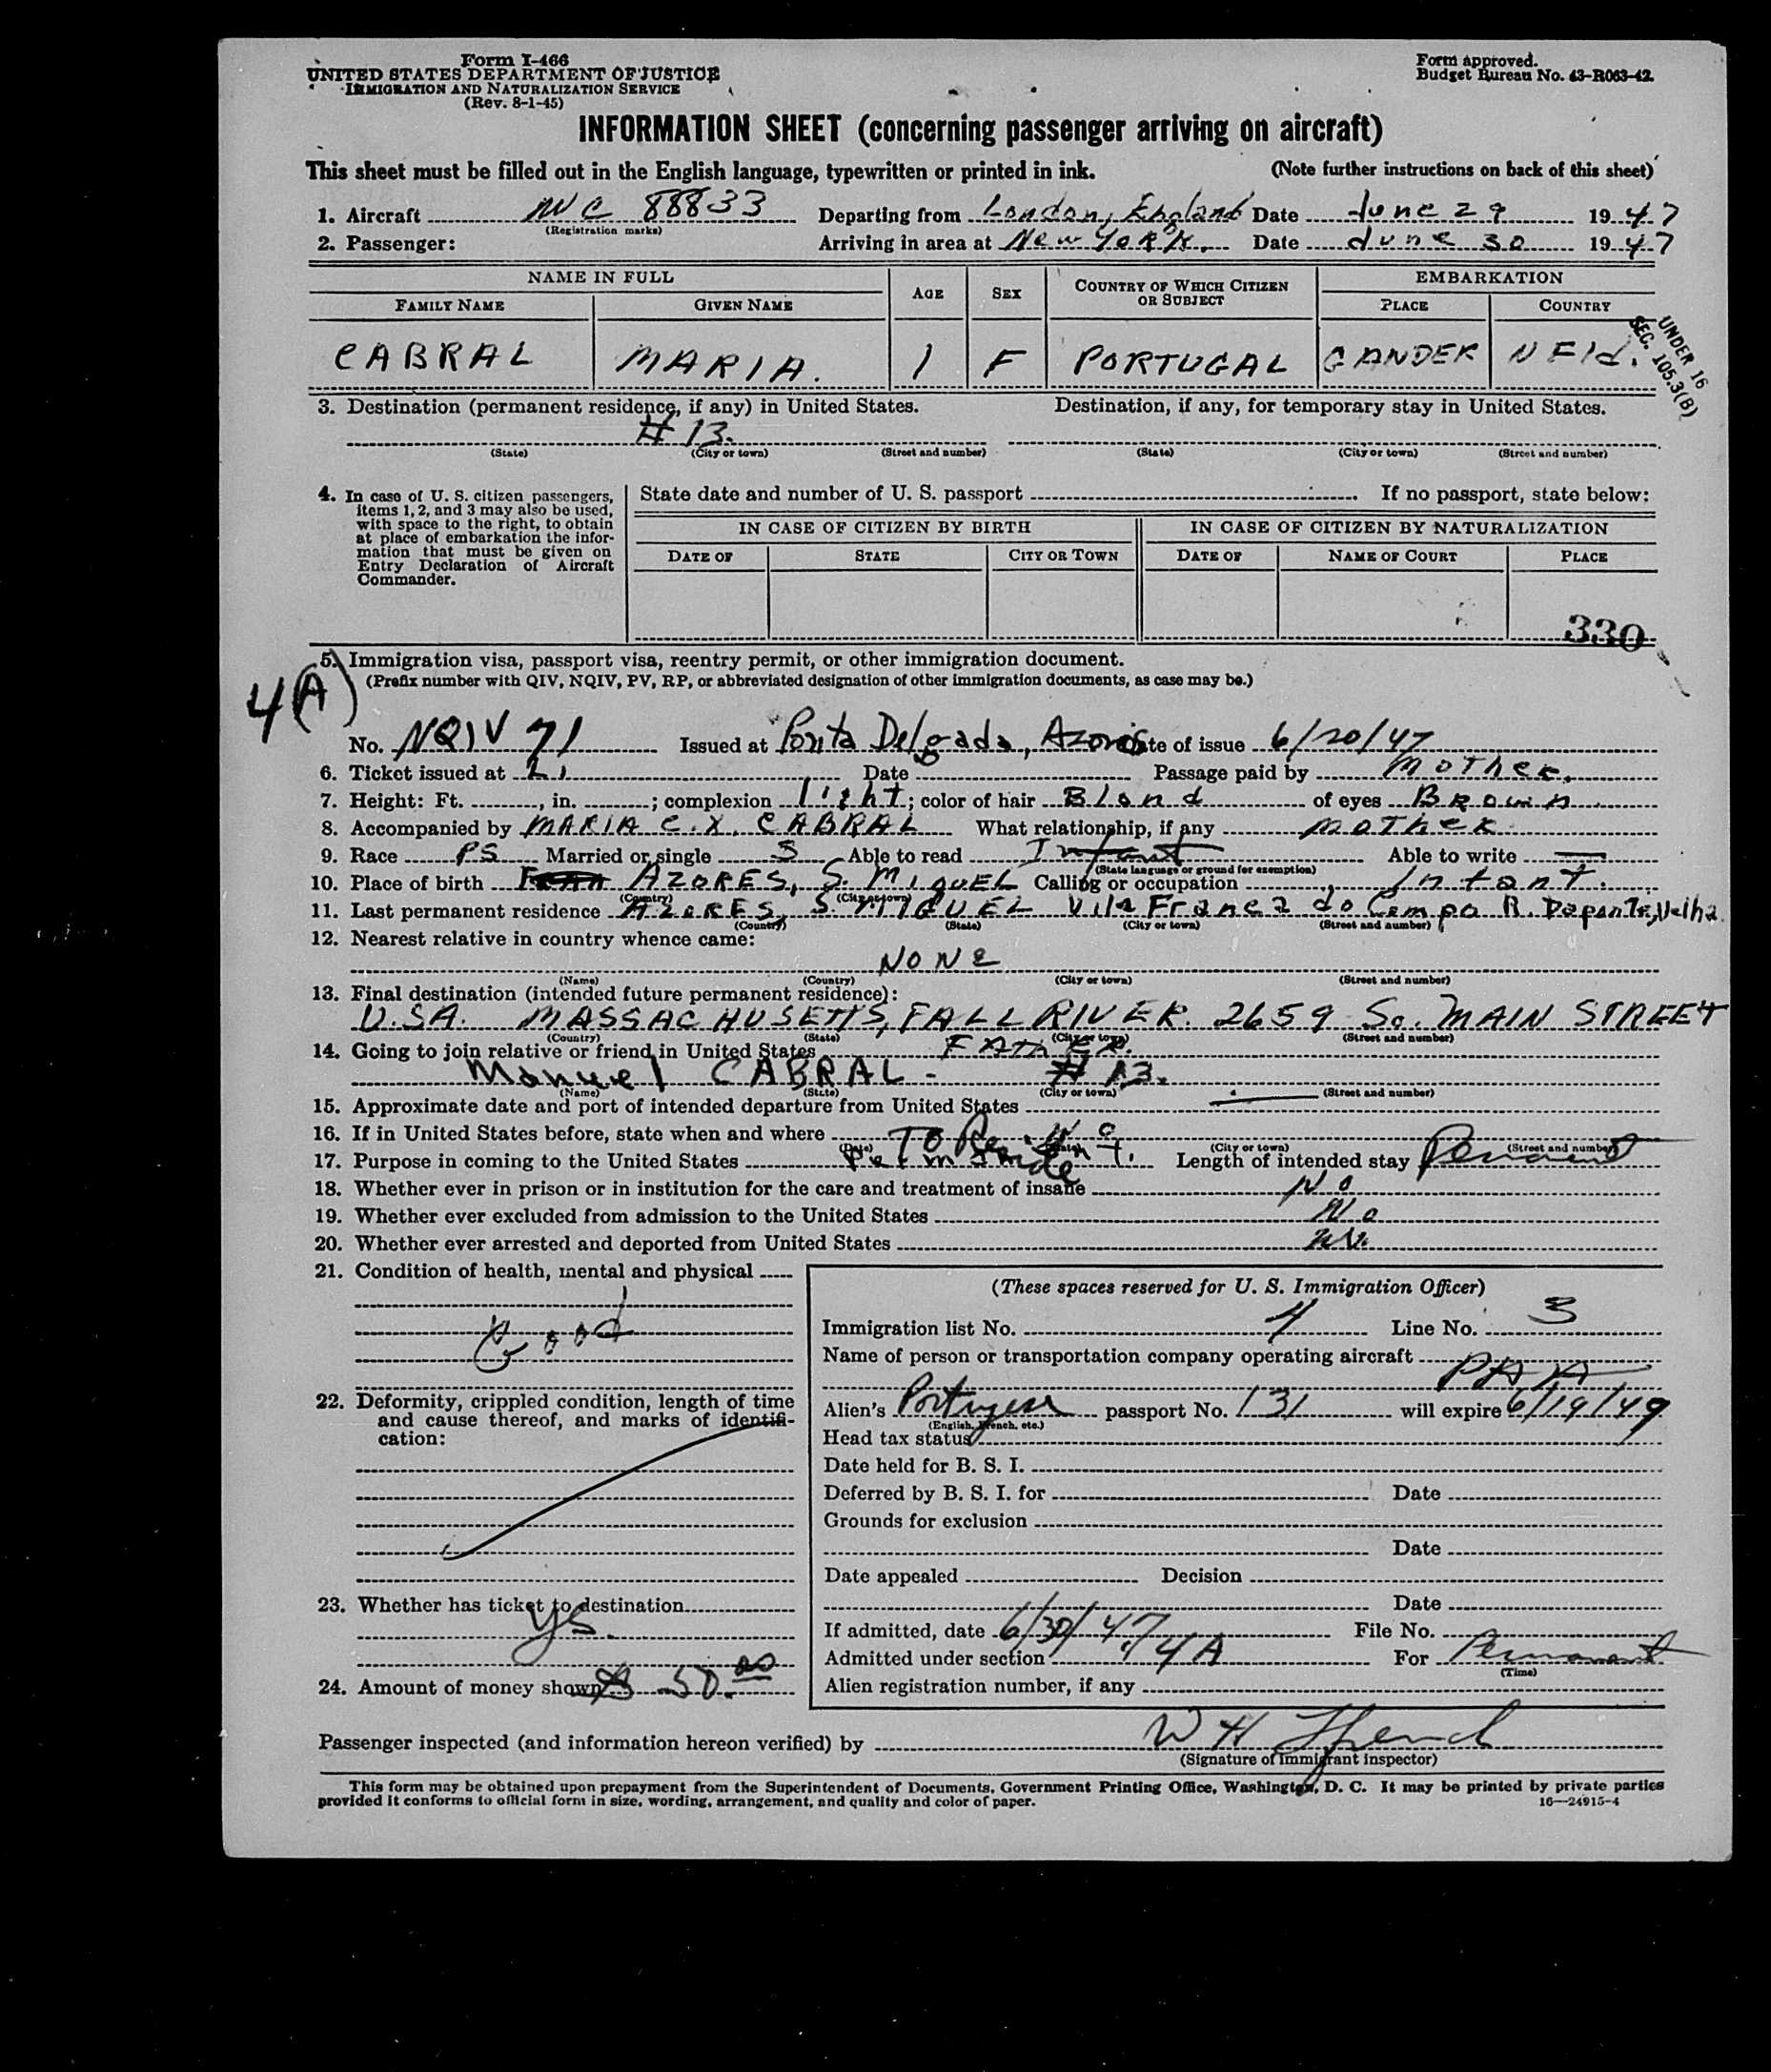 Form I-466
UNITED STATES DEPARTMENT OF JUSTICE
IMMIGRATION AND NATURALIZATION SERVICE
(Rev. 8-1-45)
Form approved.
Budget Bureau No. 43-R063-42.
INFORMATION SHEET (concerning passenger arriving on aircraft)
This sheet must be filled out in the English language, typewritten or printed in ink. (Note further instructions on back of this sheet)
1. Aircraft NC 88833 Departing from London, England Date June 29 1947
(Registration marks)
2. Passenger: Arriving in area at New York. Date June 30 1947
NAME IN FULL AGE SEX COUNTRY OF WHICH CITIZEN OR SUBJECT EMBARKATION
FAMILY NAME GIVEN NAME PLACE COUNTRY
CABRAL MARIA. 1 F PORTUGAL GANDER NFld.
UNDER 16
SEC. 105.3(B)
3. Destination (permanent residence, if any) in United States. Destination, if any, for temporary stay in United States.
# 13.
(State) (City or town) (Street and number) (State) (City or town) (Street and number)
4. In case of U. S. citizen passengers, items 1, 2, and 3 may also be used, with space to the right, to obtain at place of embarkation the information that must be given on Entry Declaration of Aircraft Commander.
State date and number of U. S. passport If no passport, state below:
IN CASE OF CITIZEN BY BIRTH IN CASE OF CITIZEN BY NATURALIZATION
DATE OF STATE CITY OR TOWN DATE OF NAME OF COURT PLACE
330
5. Immigration visa, passport visa, reentry permit, or other immigration document.
(Prefix number with QIV, NQIV, PV, RP, or abbreviated designation of other immigration documents, as case may be.)
4(A)
No. NQIV 71 Issued at Ponta Delgada, Azores Date of issue 6/20/47
6. Ticket issued at Date Passage paid by Mother.
7. Height: Ft. , in. ; complexion light; color of hair Blond of eyes Brown.
8. Accompanied by MARIA C. X. CABRAL What relationship, if any mother
9. Race PS Married or single S Able to read Infant Able to write —
(State language or ground for exemption)
10. Place of birth AZORES, S. MIGUEL Calling or occupation Infant.
(Country) (City or town)
11. Last permanent residence AZORES, S. MIGUEL Vila Franca do Campo R. Daponte, Velha
(Country) (State) (City or town) (Street and number)
12. Nearest relative in country whence came:
NONE
(Name) (Country) (City or town) (Street and number)
13. Final destination (intended future permanent residence):
U.SA. MASSACHUSETTS, FALL RIVER. 2659 So. MAIN STREET
(Country) (State) (City or town) (Street and number)
14. Going to join relative or friend in United States FAThER.
Manuel CABRAL - # 13.
(Name) (State) (City or town) (Street and number)
15. Approximate date and port of intended departure from United States —
16. If in United States before, state when and where No
(Date) (State) (City or town) (Street and number)
17. Purpose in coming to the United States To Reside Permanent. Length of intended stay Permanent
18. Whether ever in prison or in institution for the care and treatment of insane No
19. Whether ever excluded from admission to the United States No
20. Whether ever arrested and deported from United States No.
21. Condition of health, mental and physical
Good
22. Deformity, crippled condition, length of time and cause thereof, and marks of identification:
23. Whether has ticket to destination
ys.
24. Amount of money shown $ 50.00
(These spaces reserved for U. S. Immigration Officer)
Immigration list No. 4 Line No. 3
Name of person or transportation company operating aircraft
PAA
Alien's Portugese passport No. 131 will expire 6/19/49
(English, French, etc.)
Head tax status
Date held for B. S. I.
Deferred by B. S. I. for Date
Grounds for exclusion
Date
Date appealed Decision
Date
If admitted, date 6/30/47 File No.
Admitted under section 4A For Permanent
(Time)
Alien registration number, if any
Passenger inspected (and information hereon verified) by W H
(Signature of immigrant inspector)
This form may be obtained upon prepayment from the Superintendent of Documents, Government Printing Office, Washington, D. C. It may be printed by private parties
provided it conforms to official form in size, wording, arrangement, and quality and color of paper. 16—24915-4